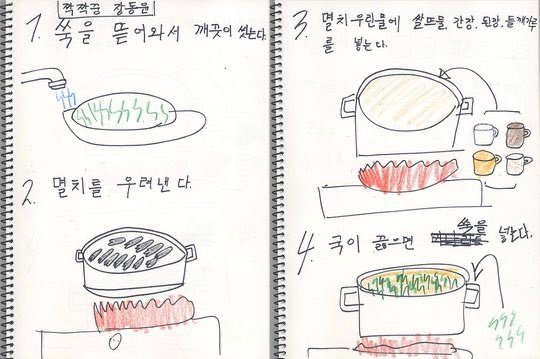 짝짝꿍 강동원
1. 쑥을 뜯어와서 깨끗이 씻는다.
2. 멸치를 우려낸다.
3. 멸치우린물에 쌀뜨물, 간장, 된장, 들깨가루
를 넣는다.
4. 국이 끓으면 쑥을 넣는다.